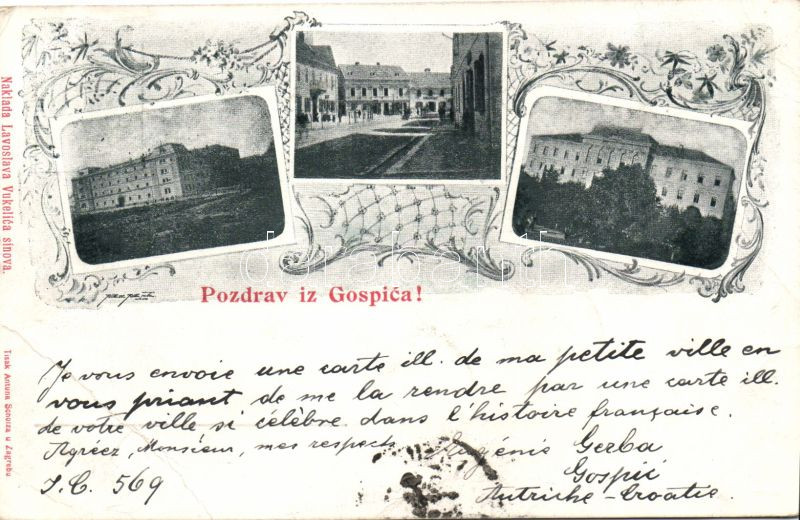 Naklada Lavoslava Vukelića sinova.
Pozdrav iz Gospića!
Tisak Antuna Scholza u Zagrebu
Je vous envoie une carte ill. de ma petite ville en
vous priant de me la rendre par une carte ill.
de votre ville si célèbre dans l'histoire française.
Agréez, Monsieur, mes respects Eugénie Gerba
Gospić
J.C. 569
Autriche-Croatie.
darabanth